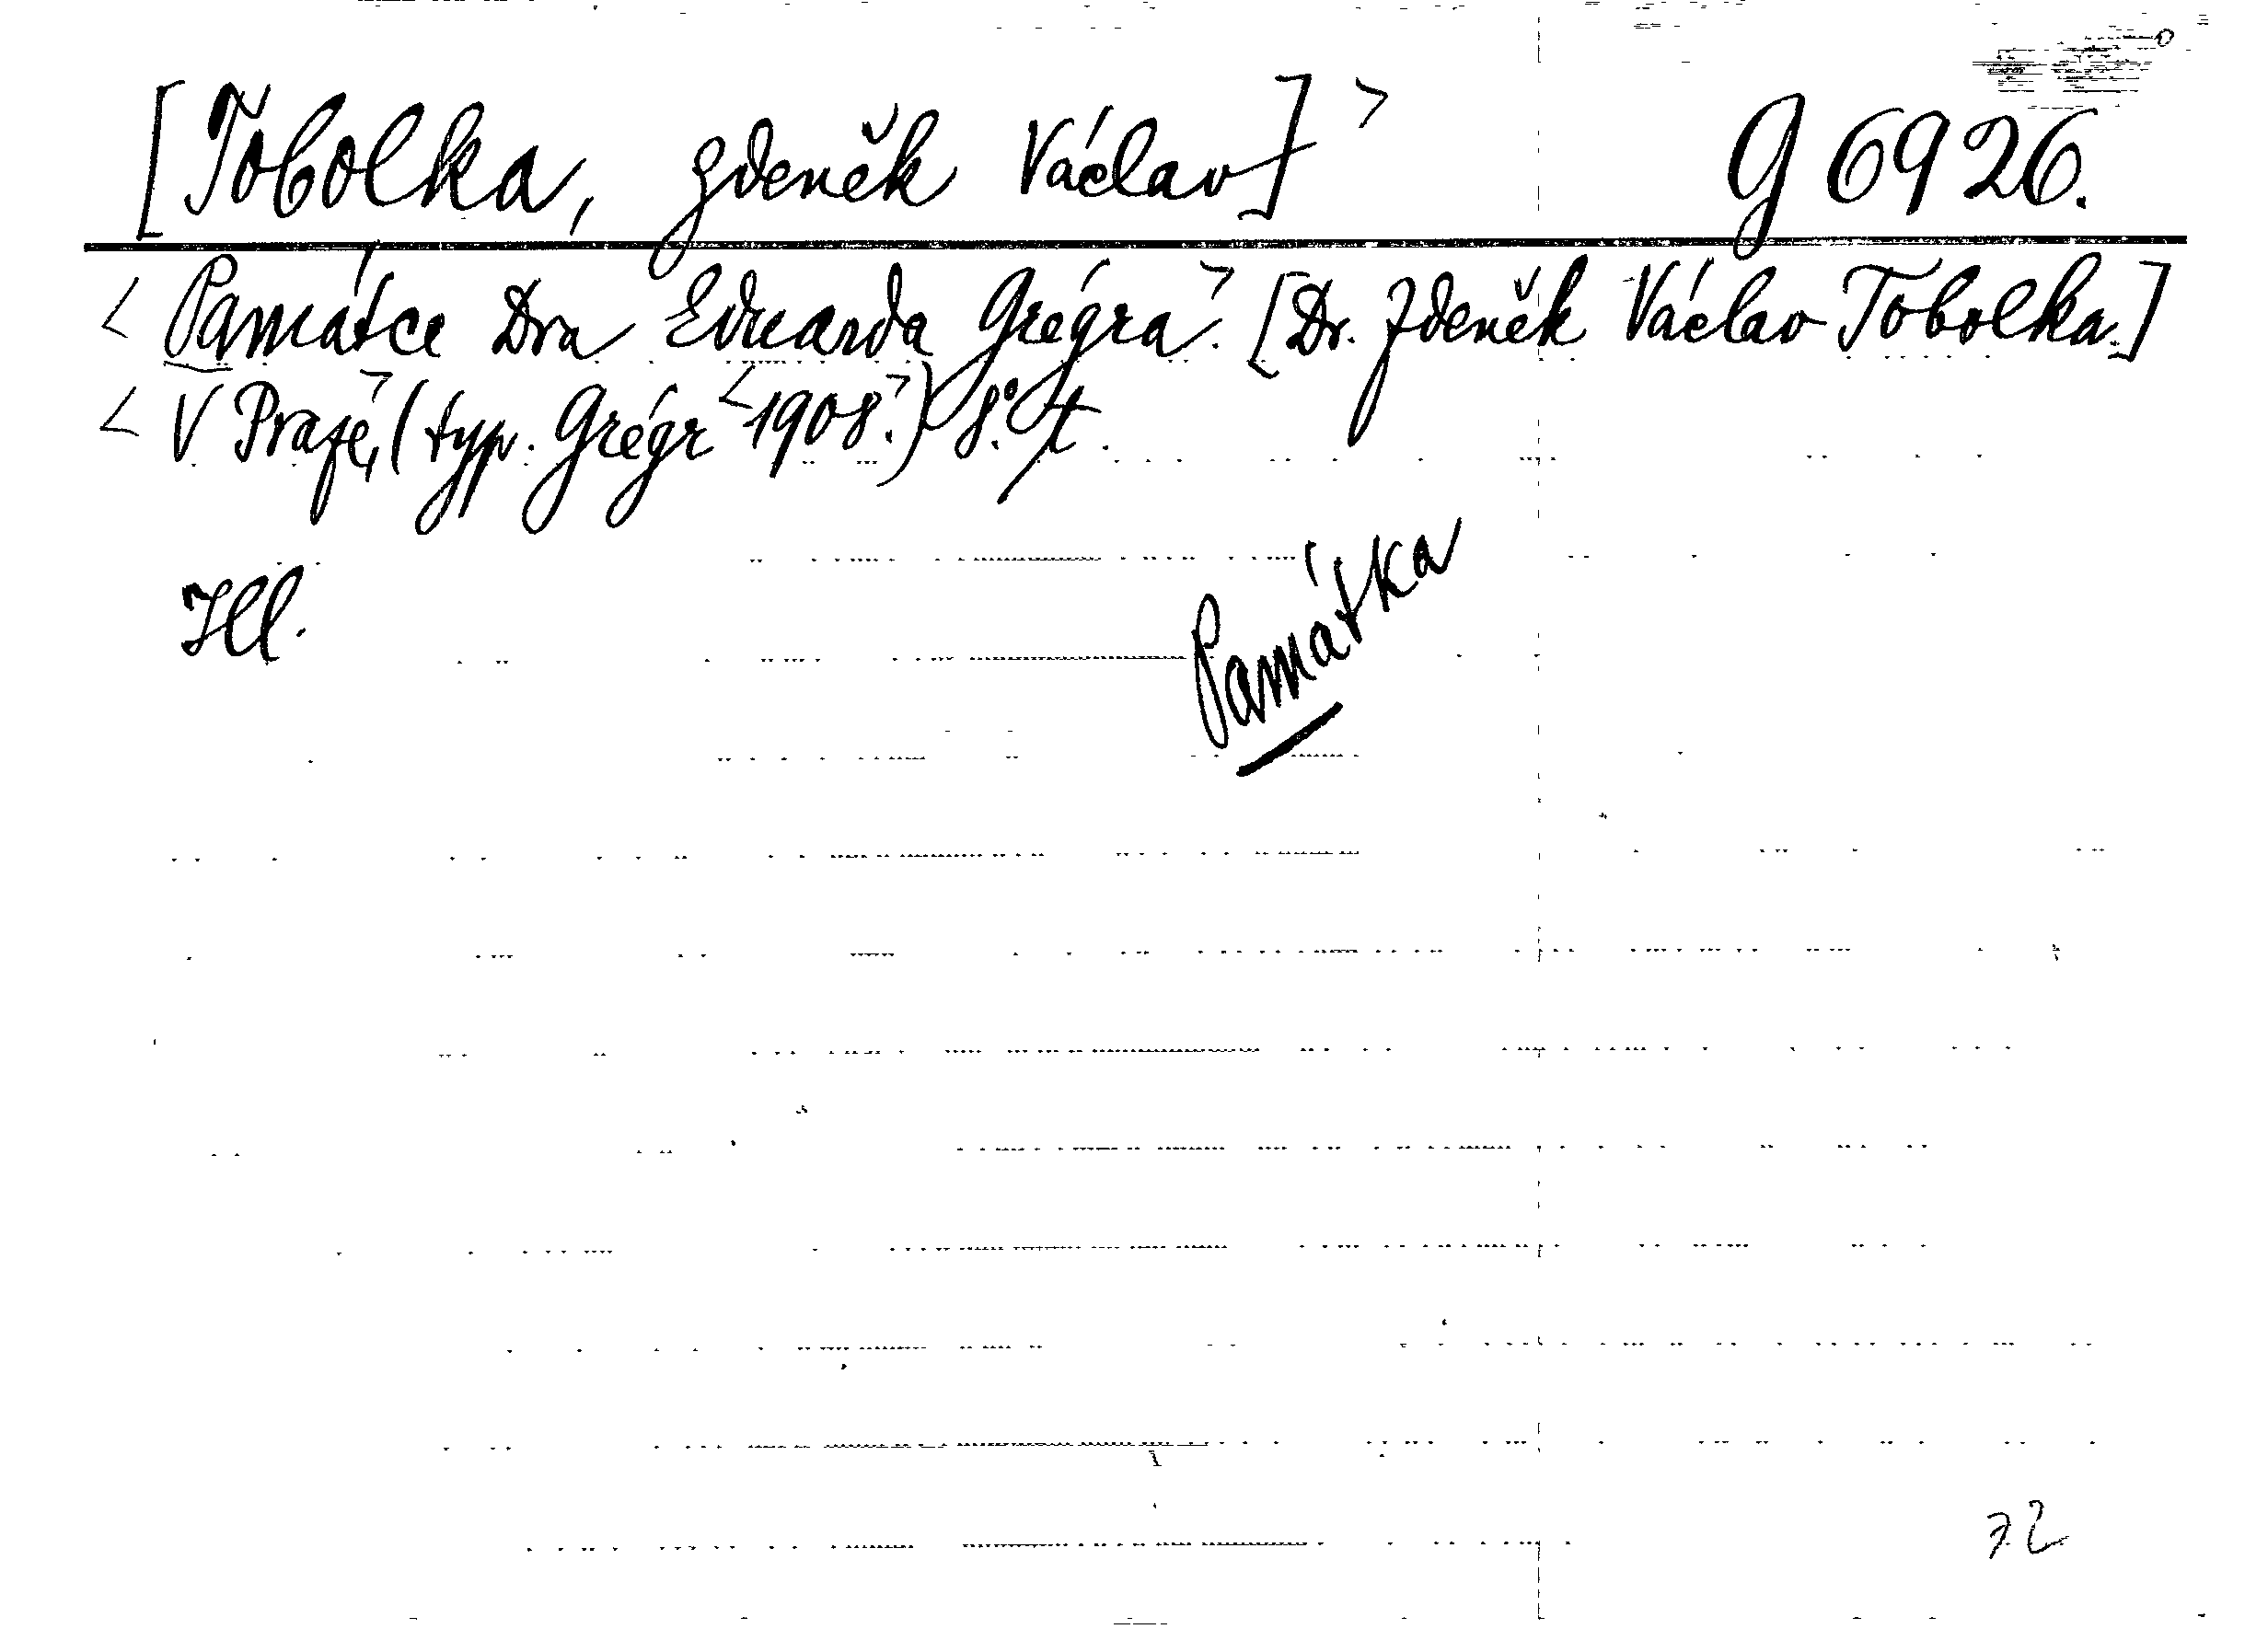 [Tobolka, Zdeněk Václav]> G 6926.
<Památce Dra Eduarda Grégra.> [Dr. Zdeněk Václav Tobolka.]
<V Praze,> (typ. Grégr <1908.>) 8.°
Ill.
Památka
72